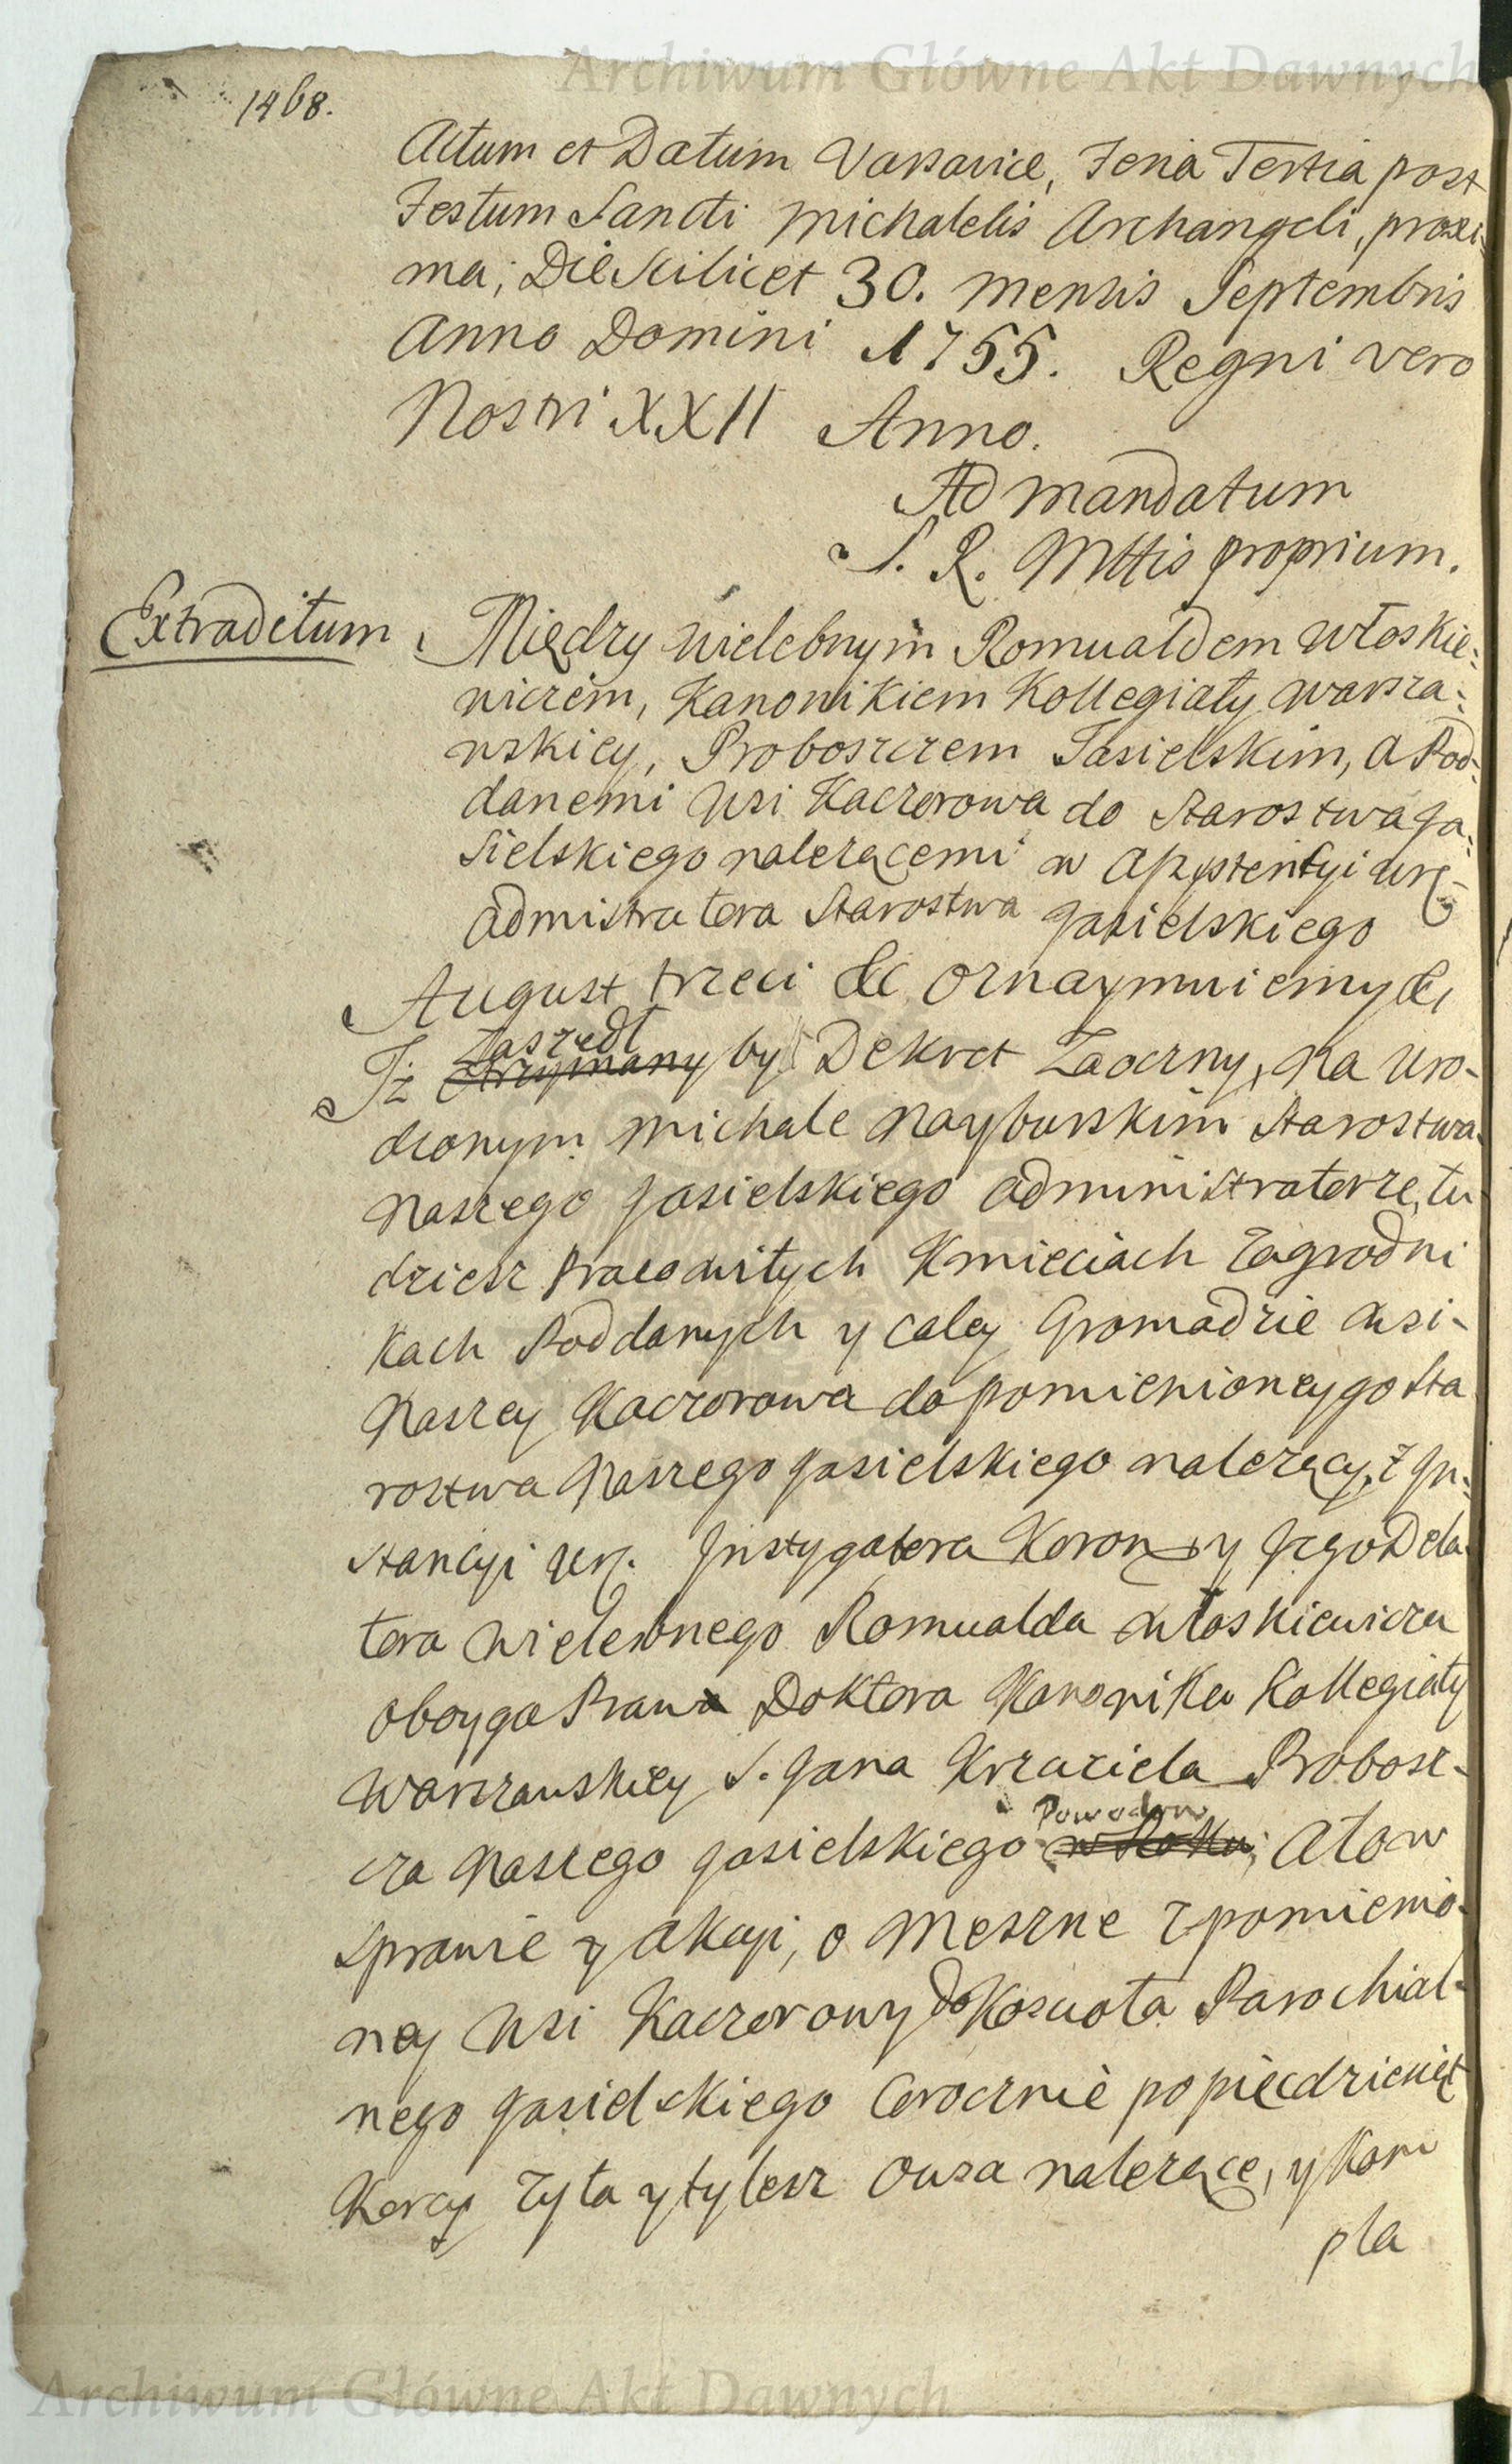 Archiwum Główne Akt Dawnych
1468.
Actum et Datum Varsaviæ, Feria Tertia post
Festum Sancti Michalelis Archangeli, proxi-
ma; Die Scilicet 30. Mensis Septembris
Anno Domini 1755. Regni vero
Nostri XXII Anno.
Ad mandatum
S. R. Mttis proprium.
Extraditum
Między Wielebnym Romualdem Włoskie:
wiczem, Kanonikiem Kollegiaty Warsza:
wskiey, Proboszczem Jasielskim, a Pod-
danemi Wsi Kaczorowa do Starostwa Ja:
sielskiego należącemi w Assystentyi Ur.
Admistratora Starostwa Jasielskiego
August trzeci &c Oznaymuiemy &c,
Iż Zaszedł otrzymany by Dekret Zaoczny, na Uro-
dzonym Michale Rayburskim Starostwa
Naszego Jasielskiego Administratorze, tu
dziesz Pracowitych Kmieciach Zagrodni
kach Poddanych y całey Gromadzie Wsi-
Naszey Kaczorowa do pomienioneygo Sta
rostwa Naszego Jasielskiego należącey, z In-
stancyi Ur. Instygatora Koron y Jego Dela
tora Wielebnego Romualda Włoskiewicza
oboyga Prawa Doktora Kanonika Kollegiaty
Warszawskiey S. Jana Krzciciela Probosz-
cza Naszego Jasielskiego Powodow w Roku; a to w
sprawie y akcyi, o Meszne z pomienio-
ney Wsi Kaczorowy do Kościoła Parochial-
nego Jasielskiego Corocznie po pięcdziesiąt
Korcy Zyta y tylesz Owsa należące, y Kom
pla
Archiwum Główne Akt Dawnych